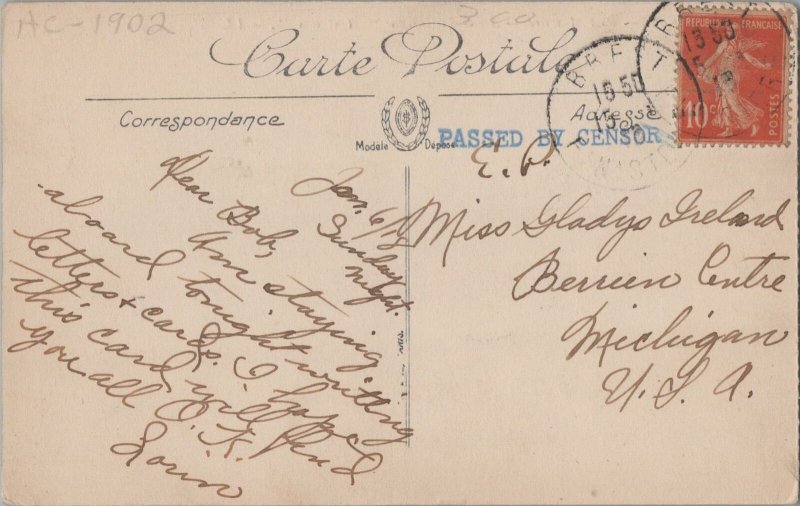 AC-1902
3.00
Carte Postale
Correspondance
Adresse
Modèle Déposé
PASSED BY CENSOR
REPUBLIQUE FRANÇAISE
10c
POSTES
BREST
15 50
FINISTERE
Jan. 6/18
Sunday
night.
Dear Bob,
Am staying
aboard tonight writing
letters & cards. I hope
this card will find
you all O.K.
Lorin
E. P.
Miss Gladys Ireland
Berrien Centre
Michigan
U. S. A.